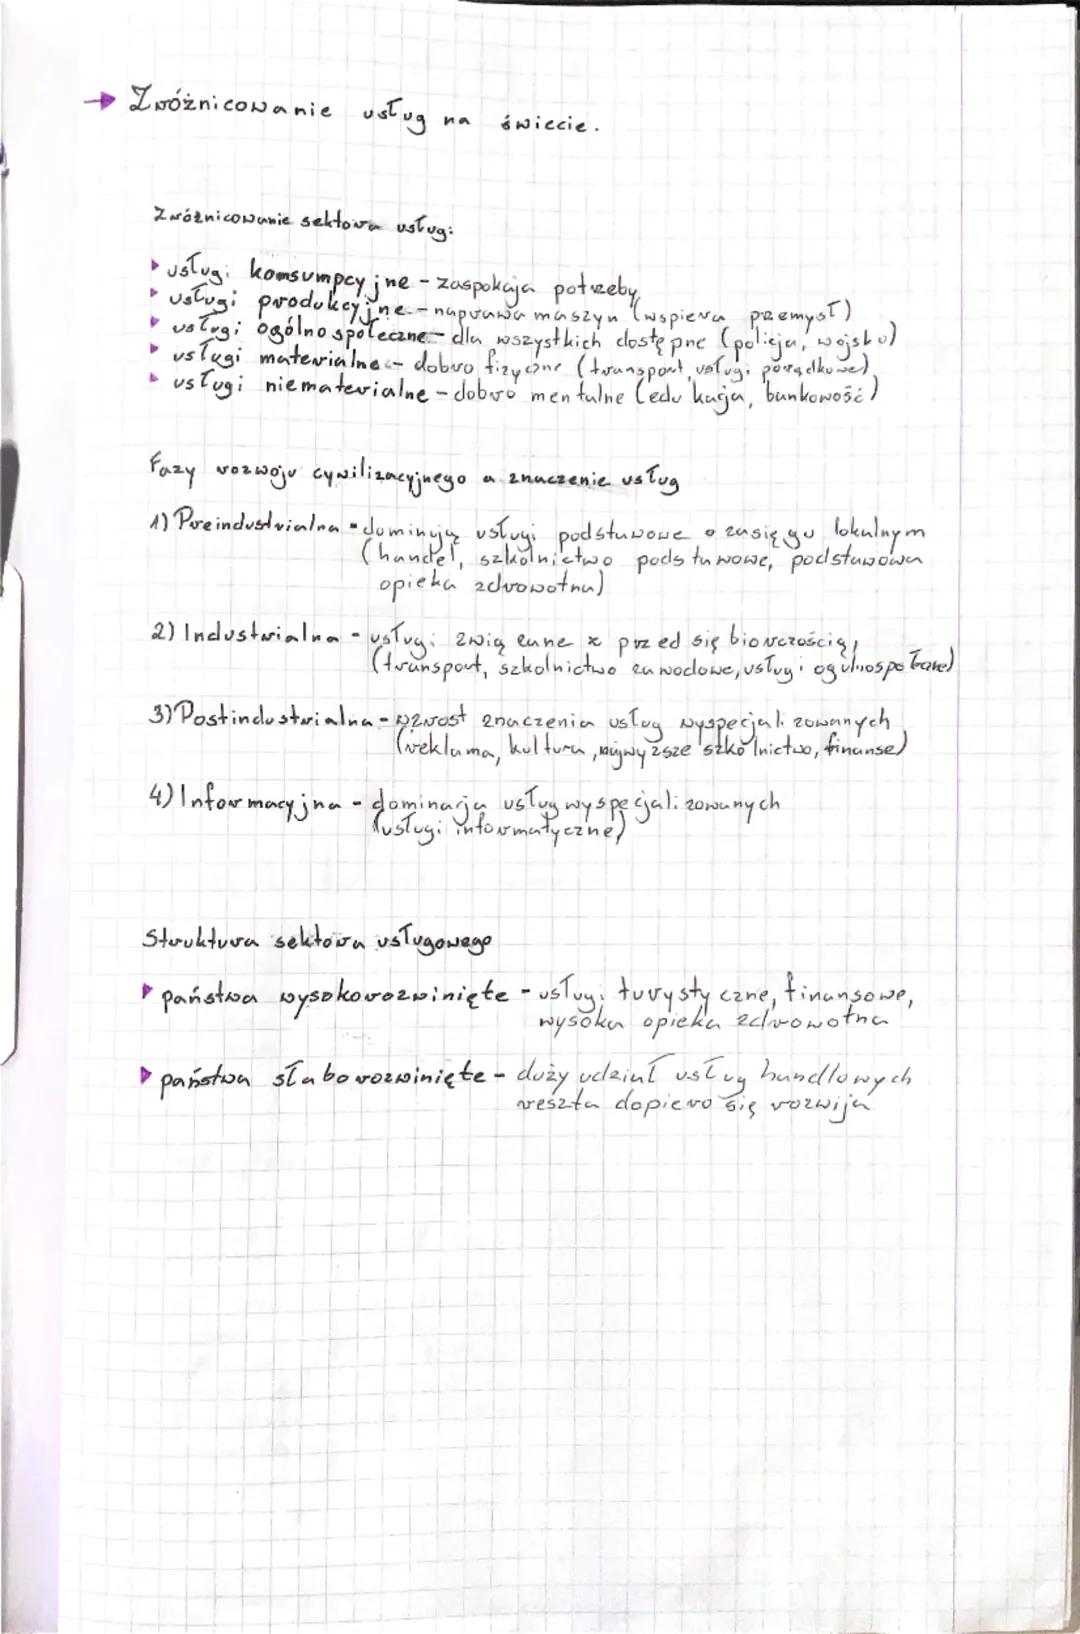 → Zróżnicowanie usług na świecie.
Zróżnicowanie sektora usług:
usługi komsumpcyjne - zaspokaja potrzeby
usługi produkcyjne - naprawa maszyn (wspiera przemysł)
usługi ogólnospołeczne - dla wszystkich dostępne (policja, wojsko)
usługi materialne - dobro fizyczne (transport, usługi porządkowe)
usługi niematerialne - dobro mentalne (edukacja, bankowość)
Fazy rozwoju cywilizacyjnego a znaczenie usług
1) Preindustrialna - dominują usługi podstawowe o zasięgu lokalnym
(handel, szkolnictwo podstawowe, podstawowa
opieka zdrowotna)
2) Industrialna - usługi związane z przedsiębiorczością,
(transport, szkolnictwo zawodowe, usługi ogólnospołeczne)
3) Postindustrialna - wzrost znaczenia usług wyspecjalizowanych
(reklama, kultura, najwyższe szkolnictwo, finanse)
4) Informacyjna - dominacja usług wyspecjalizowanych
(usługi informatyczne)
Struktura sektora usługowego
państwa wysokorozwinięte - usługi turystyczne, finansowe,
wysoka opieka zdrowotna
państwa słaborozwinięte - duży udział usług handlowych
reszta dopiero się rozwija